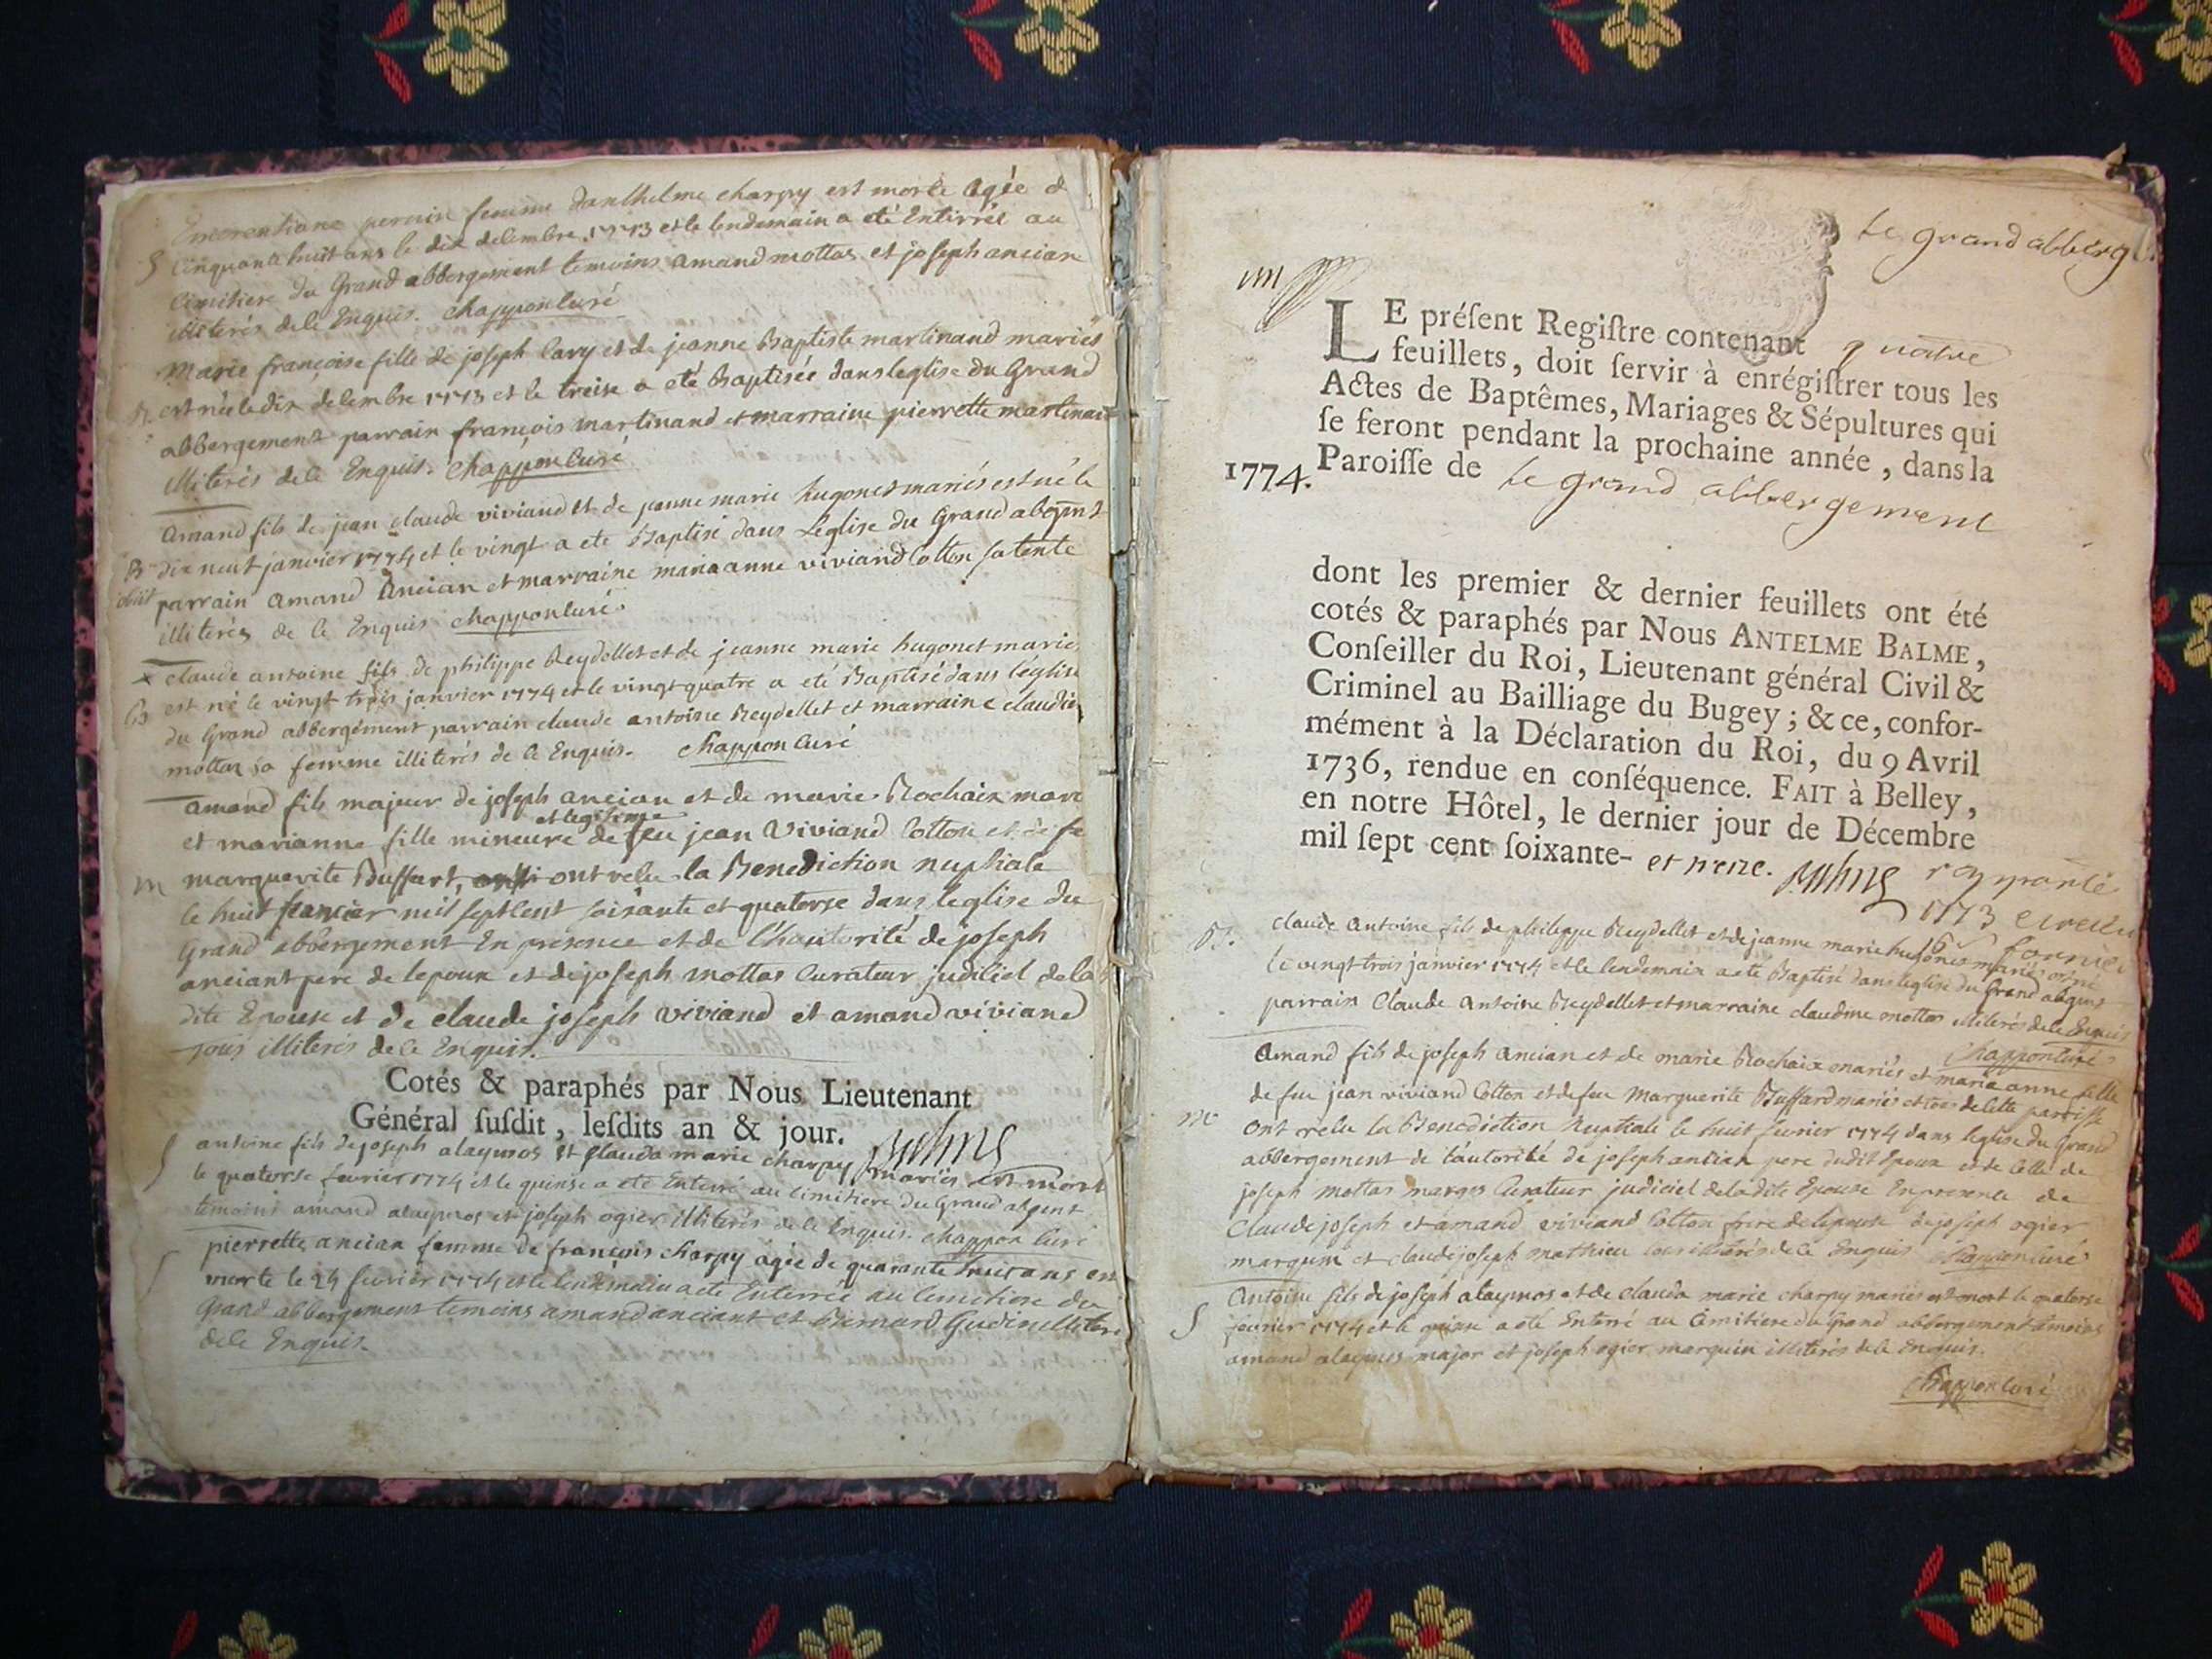 femme danthelme charpy est morte agée de
S cinquante huit ans le dix decembre 1773 et le lendemain a eté Entirrée au
cimitiere du Grand abbergement temoins amand mottas et joseph ancian
illiterés de ce Enquis. chappon curé
Marie françoise fille de joseph Cary et de jeanne Baptiste martinand mariés
est née le dix decembre 1773 et le treise a eté Baptisée dans leglise du Grand
abbergement parrain francois martinand et marraine pierrette martinand
illiterés de ce Enquis. chappon curé
amand fils de jean claude viviand et de jeanne marie hugonet mariés est né le
B dix neuf janvier 1774 et le vingt a ete Baptisé dans L'eglise du Grand abgmt
obiit parrain amand Ancian et marraine marianne viviand Cotton sa tente
illiterés de ce Enquis chappon curé.
x claude antoine fils de philippe Reydellet et de jeanne marie hugonet mariés
B est né le vingt trois janvier 1774 et le vingt quatre a eté Baptisé dans l'église
du Grand abbergement parrain claude antoine Reydellet et marraine claudine
mottas sa femme illiterés de ce Enquis. chappon curé
amand fils majeur de joseph ancian et de marie Rochaix mari
et marianne fille mineure et legitime de feu jean Viviand Cotton et de fe
m marguerite Buffart, ont recu la Benediction nuptiale
le huit fevrier mil sept cent soixante et quatorse dans leglise du
Grand abbergement En presence et de l'hautorité de joseph
anciant pere de lepoux et de joseph mottas Curateur judiciel de la
dite Epouse et de claude joseph viviand et amand viviand
tous illiterés de ce Enquis.
Cotés & paraphés par Nous Lieutenant
Général ſuſdit, leſdits an & jour.
S antoine fils de joseph alaymos et clauda marie charpy mariés est mort
le quatorse fevrier 1774 et le quinse a eté Enterré au cimitiere du Grand abgent
temoins amand alaymos et joseph ogier illiterés de ce Enquis. chappon curé
S pierrette ancian femme de françois charpy agée de quarante huit ans est
morte le 24 fevrier 1774 et le lendemain a eté Enterrée au Cemetiere du
Grand abbergement temoins amand anciant et Bernard Gudin illiteré
de ce Enquis.
Le grand abberg
un
LE préſent Regiſtre contenant quatre
feuillets, doit ſervir à enrégiſtrer tous les
Actes de Baptêmes, Mariages & Sépultures qui
ſe feront pendant la prochaine année, dans la
1774. Paroiſſe de Le grand abbergement
dont les premier & dernier feuillets ont été
cotés & paraphés par Nous ANTELME BALME,
Conſeiller du Roi, Lieutenant général Civil &
Criminel au Bailliage du Bugey; & ce, confor-
mément à la Déclaration du Roi, du 9 Avril
1736, rendue en conſéquence. FAIT à Belley,
en notre Hôtel, le dernier jour de Décembre
mil ſept cent ſoixante- et treze.
1773
B. claude Antoine fils de philippe Reydellet et de jeanne marie hugonet mariés est né
le vingt trois janvier 1774 et le lendemain a eté Baptisé dans leglise du Grand abgmt
parrain Claude Antoine Reydellet et marraine claudine mottas illiterés de ce Enquis
chappon curé
Amand fils de joseph ancian et de marie Rochaix mariés et marie anne fille
de feu jean viviand Cotton et de feu Marguerite Buffard mariés et tous de cette paroisse
m ont recu la Benediction Nuptiale le huit fevrier 1774 dans leglise du Grand
abbergement de l'autorité de joseph ancian pere dudit Epoux et de Celle de
joseph mottas marges Curateur judiciel de la dite Epouse En presence de
Claude joseph et amand viviand Cotton frere de lepouse de joseph ogier
marquin et claude joseph mathieu tous illiterés de ce Enquis chappon curé
Antoine fils de joseph alaymos et de clauda marie charpy mariés est mort le quatorse
S fevrier 1774 et le quinse a eté Enterré au Cimitiere du Grand abbergement temoins
amand alaymos major et joseph ogier marquin illiterés de ce Enquis.
chappon curé